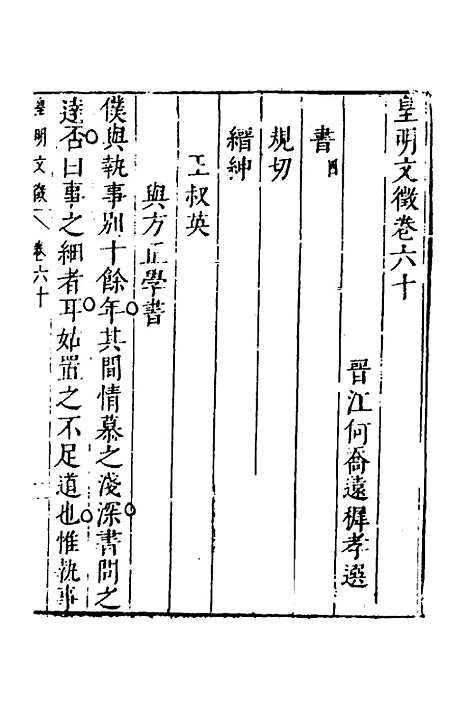 皇明文徵卷六十
晉江何喬遠穉孝選
書四
規切
縉紳
王叔英
與方正學書
僕與執事別十餘年其間情慕之淺深書問之
達否曰事之細者耳姑置之不足道也惟執事
皇明文徵 卷六十 一